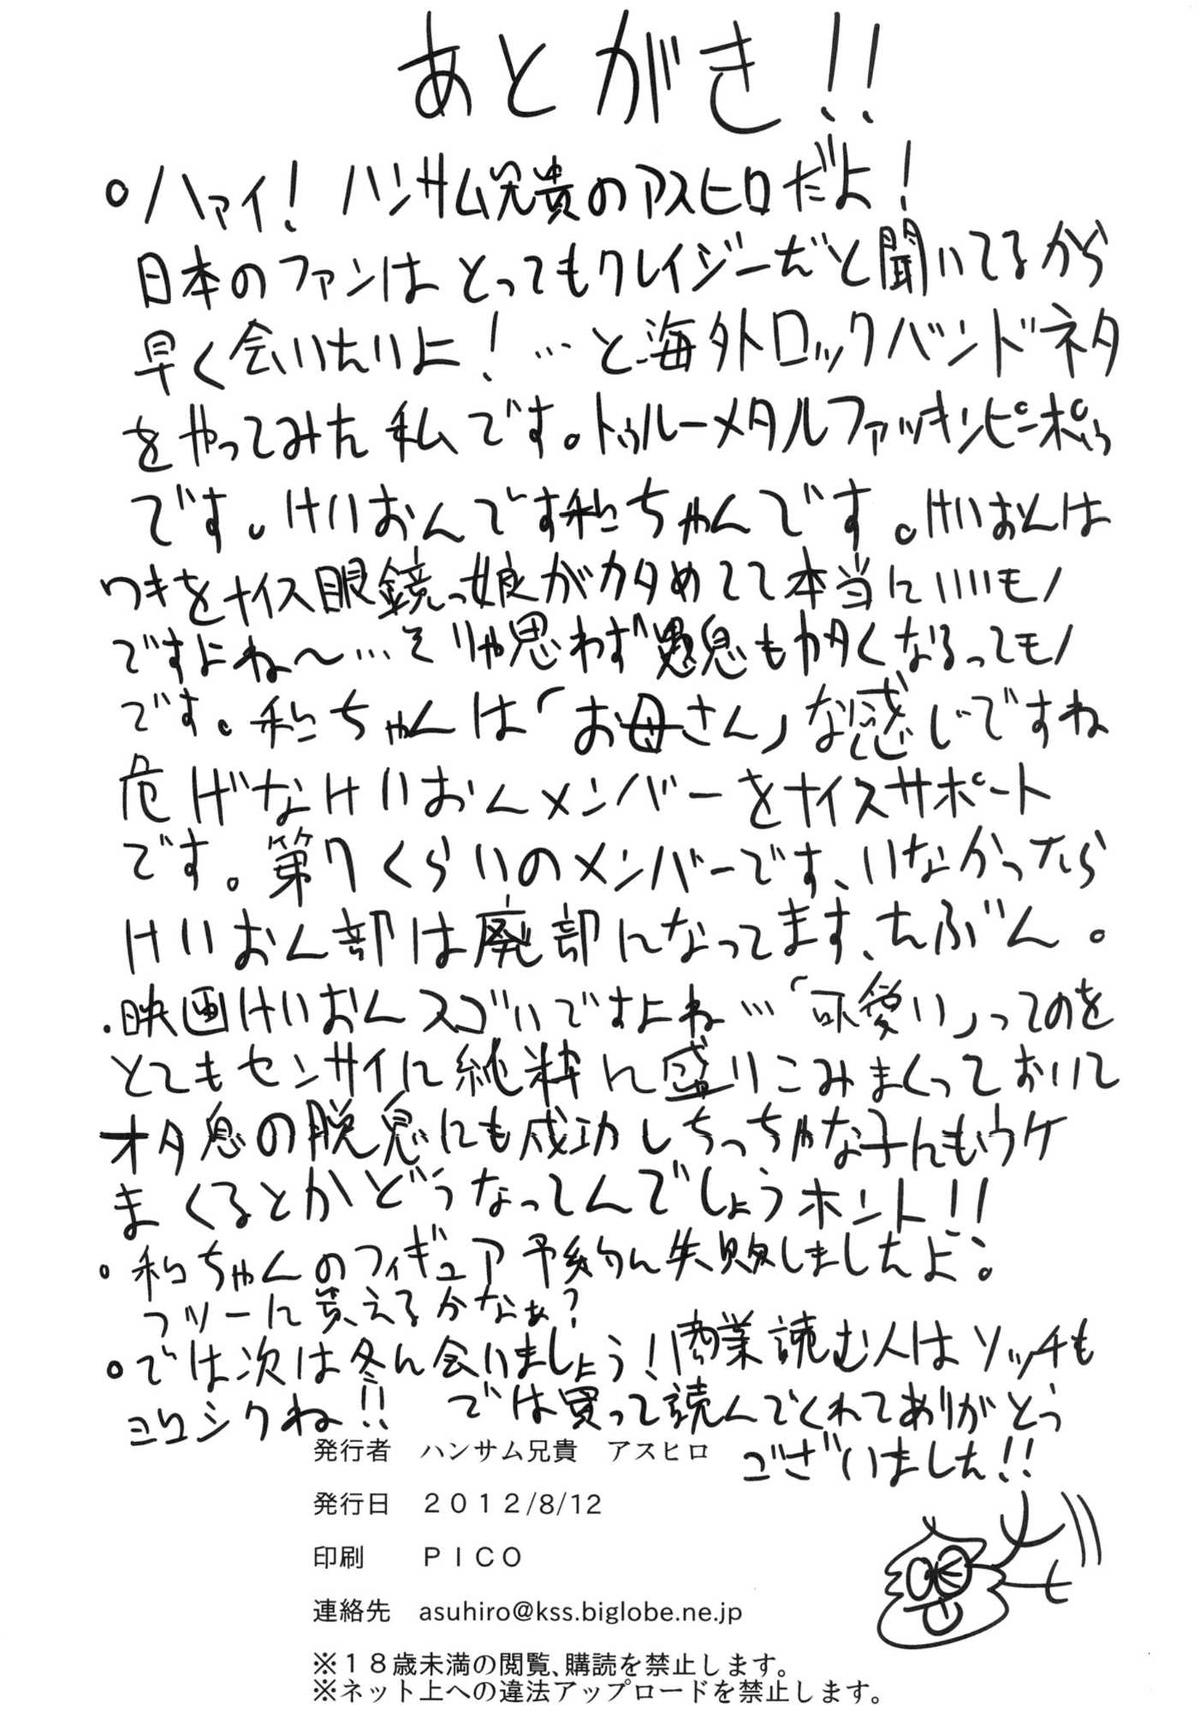 あとがき!!
○ハァイ!ハンサム兄貴のアスヒロだよ!
日本のファンはとってもクレイジーだと聞いてるから
早く会いたいよ!…と海外ロックバンドネタ
をやってみた私です。トゥルーメタルファッキンピーポゥ
です。けいおんです和ちゃんです。けいおんは
ワキをナイス眼鏡っ娘がカタめてて本当にいいモノ
ですよね～…そりゃ思わず愚息もカタくなるってモノ
です。和ちゃんは「お母さん」な感じですね
危げなけいおんメンバーをナイスサポート
です。第7くらいのメンバーです、いなかったら
けいおん部は廃部になってます、たぶん。
・映画けいおんスゴいですよね…「可愛い」ってのを
とてもセンサイに純粋に盛りこみまくっておいて
オタ息の脱息にも成功しちっちゃな子にもウケ
まくるとかどうなってんでしょうホント!!
○和ちゃんのフィギュア予約に失敗しましたよ。
フツーに買えるかなぁ?
○では次は冬に会いましょう!商業読む人はソッチも
ヨロシクね!! では買って読んでくれてありがとう
ございました!!
発行者 ハンサム兄貴 アスヒロ
発行日 2012/8/12
印刷 PICO
連絡先 asuhiro@kss.biglobe.ne.jp
※18歳未満の閲覧、購読を禁止します。
※ネット上への違法アップロードを禁止します。